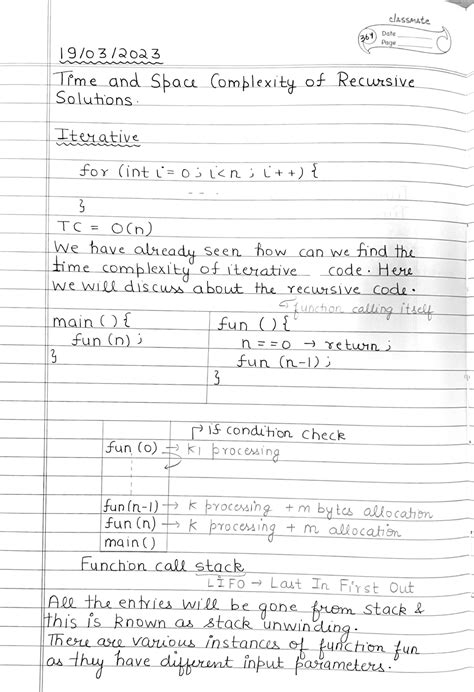 classmate
Date
Page
369
19/03/2023
Time and Space Complexity of Recursive
Solutions.
Iterative
for (int i = 0 ; i<n ; i++) {
- - -
}
TC = O(n)
We have already seen how can we find the
time complexity of iterative code. Here
we will discuss about the recursive code.
function calling itself
main () {
fun (n) ;
}
fun () {
n == 0 → return ;
fun (n-1) ;
}
if condition check
fun (0) → k1 processing
fun(n-1) → k processing + m bytes allocation
fun (n) → k processing + m allocation
main()
Function call stack
LIFO → Last In First Out
All the entries will be gone from stack &
this is known as stack unwinding.
There are various instances of function fun
as they have different input parameters.